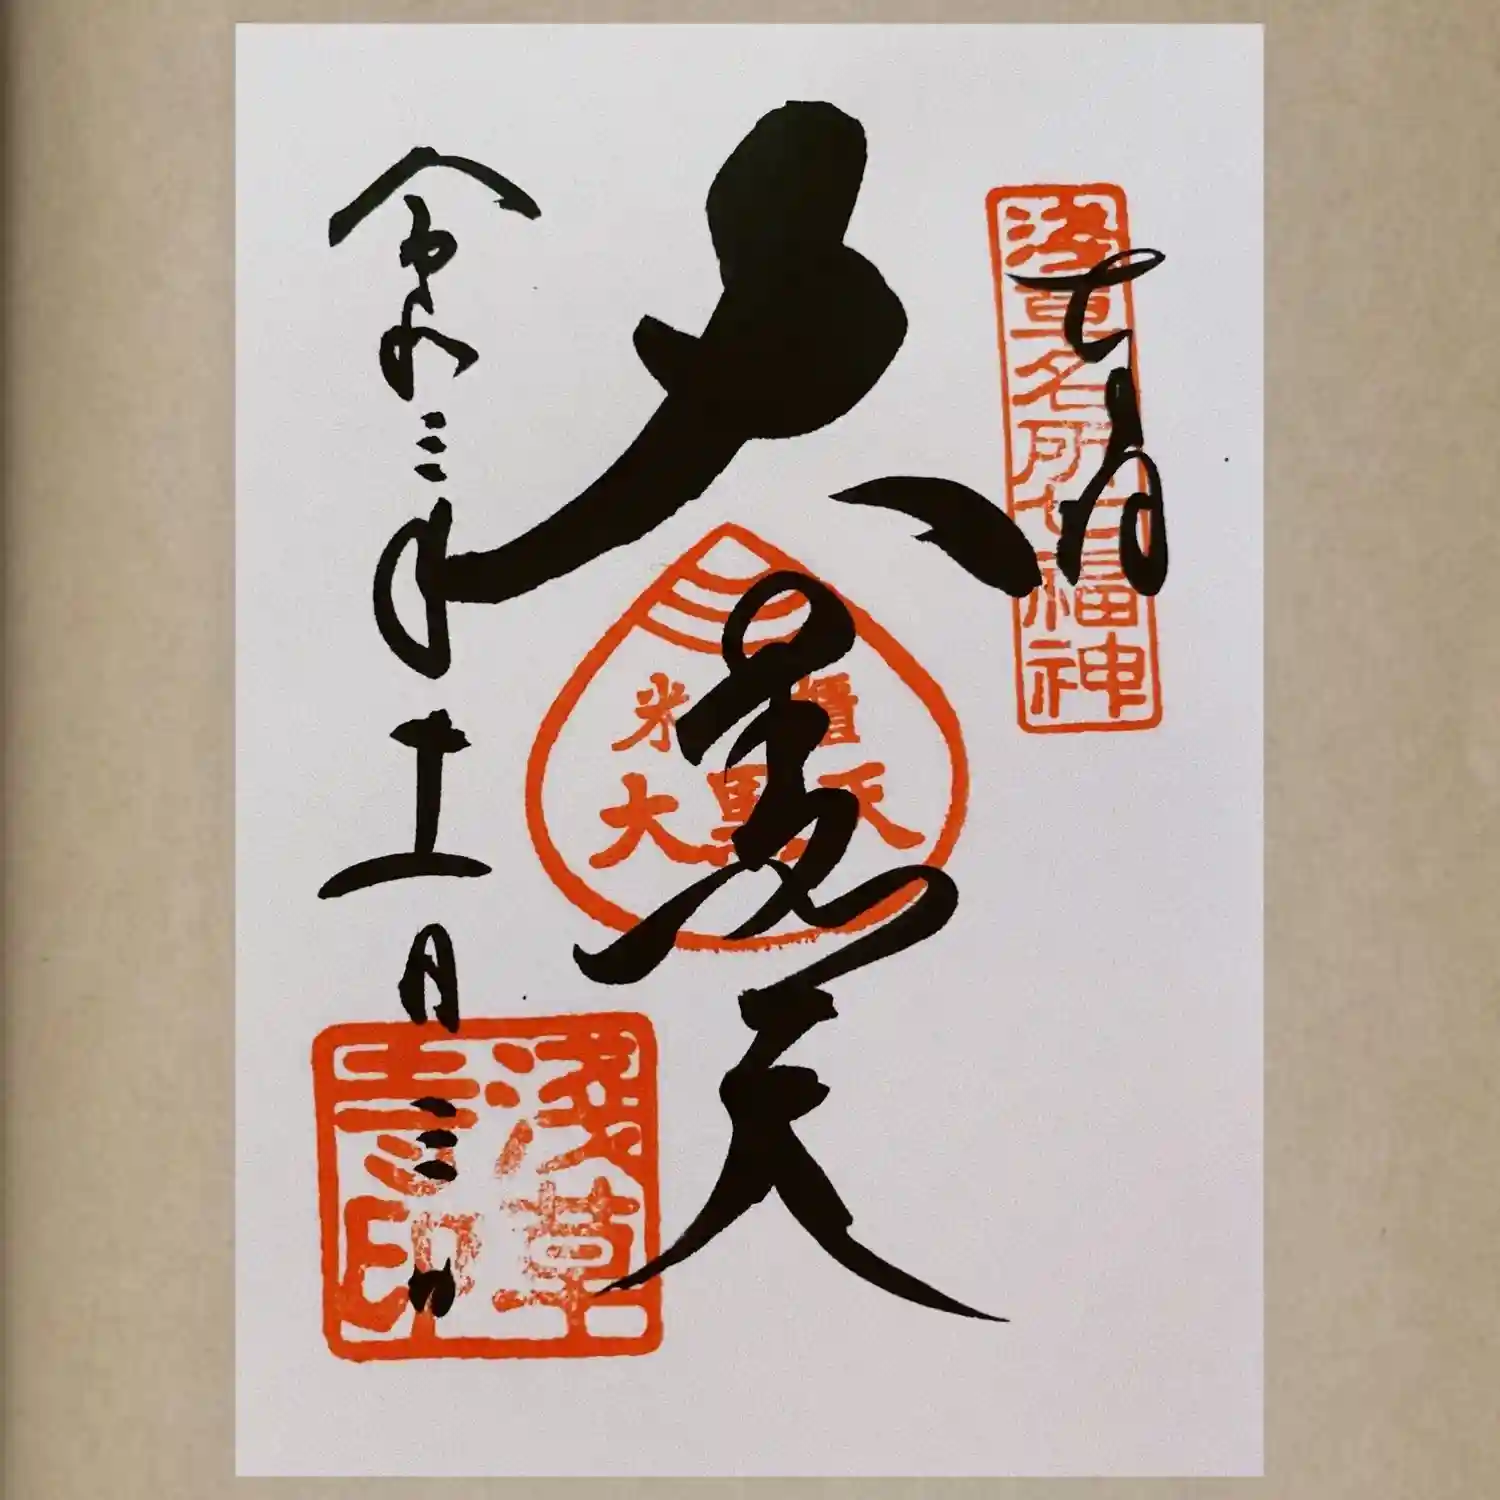 淺草名所七福神
大黒天
米櫃
大黒天
令和三年十一月三日
淺草
寺印